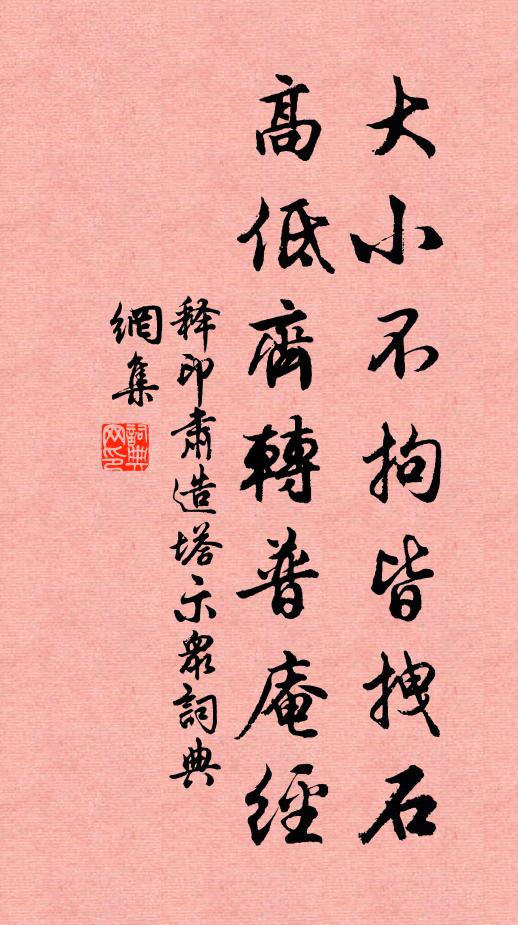 大小不拘皆拽石
高低齊轉普庵經
释印肅造塔示衆詞典
網集
詞典網印